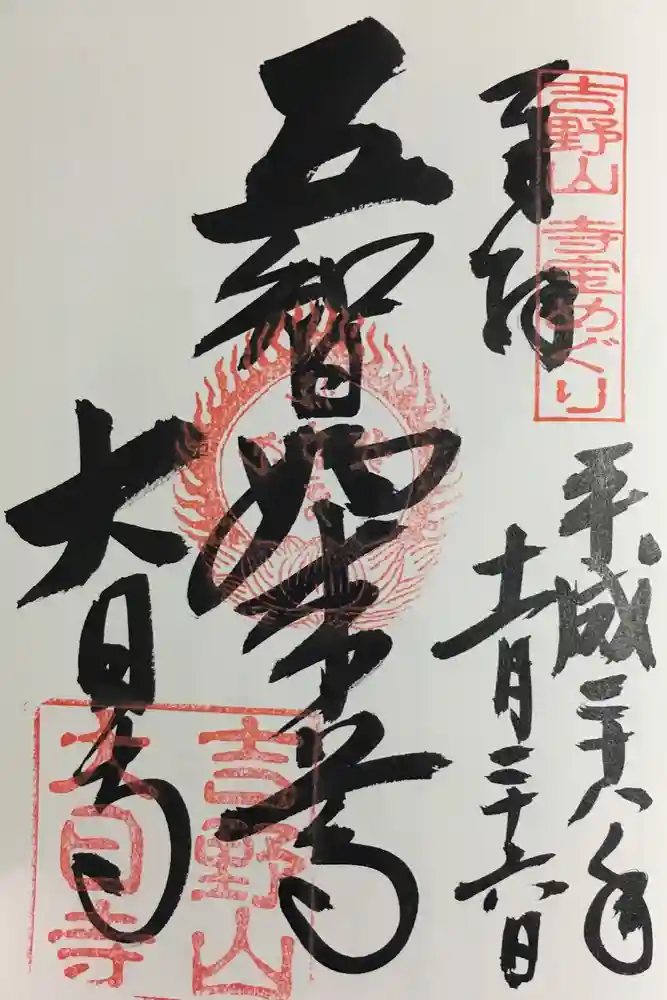 奉拝
吉野山 寺宝めぐり
平成二十八年
十一月二十六日
五智如来尊
大日寺
吉野山
大日寺